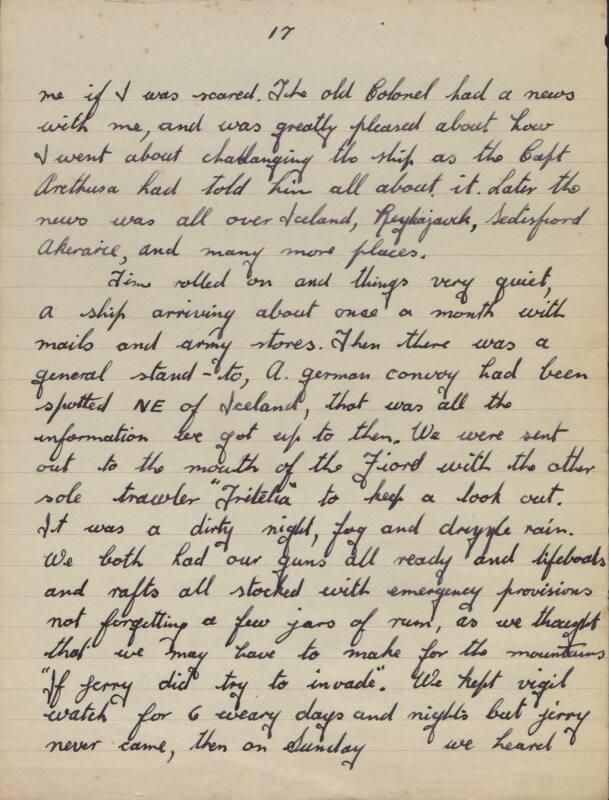 17
me if I was scared. The old Colonel had a news
with me, and was greatly pleased about how
I went about challanging the ship as the Capt
Arethusa had told him all about it. Later the
news was all over Iceland, Reykajavik,
and many more places.
Time rolled on and things very quiet,
a ship arriving about once a month with
mails and army stores. Then there was a
general stand-to, A. german convoy had been
spotted NE of Iceland, that was all the
information we got up to then. We were sent
out to the mouth of the Fiord with the other
sole trawler "Tritelia" to keep a look out.
It was a dirty night, fog and drizzle rain.
We both had our guns all ready and lifeboats
and rafts all stocked with emergency provisions
not forgetting a few jars of rum, as we thought
that we may have to make for the mountains
"If jerry did try to invade". We kept vigil
watch for 6 weary days and nights but jerry
never came, then on Sunday we heard